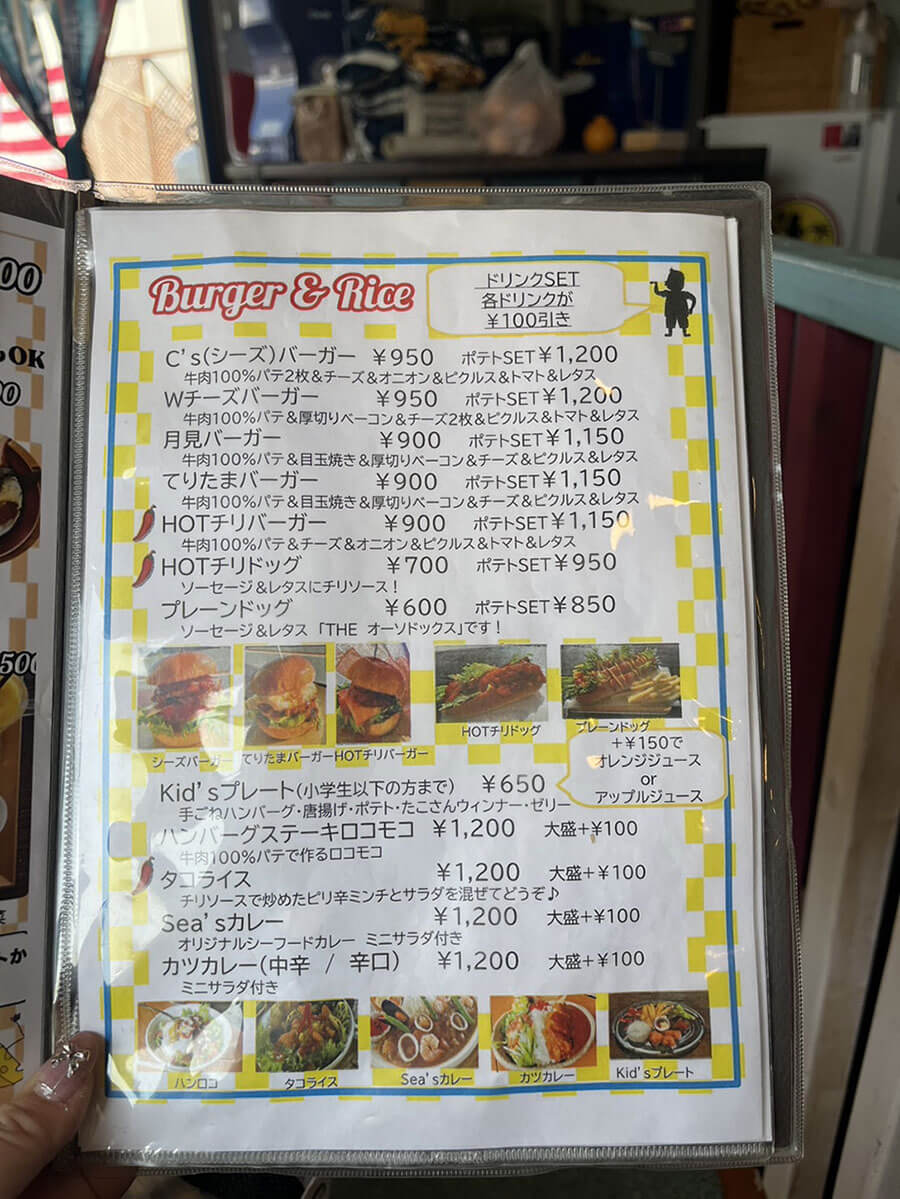 00
OK
00
500
トか
Burger & Rice
ドリンクSET
各ドリンクが
¥100引き
C's(シーズ)バーガー ¥950 ポテトSET¥1,200
牛肉100%パテ2枚&チーズ&オニオン&ピクルス&トマト&レタス
Wチーズバーガー ¥950 ポテトSET¥1,200
牛肉100%パテ&厚切りベーコン&チーズ2枚&ピクルス&トマト&レタス
月見バーガー ¥900 ポテトSET¥1,150
牛肉100%パテ&目玉焼き&厚切りベーコン&チーズ&ピクルス&レタス
てりたまバーガー ¥900 ポテトSET¥1,150
牛肉100%パテ&目玉焼き&厚切りベーコン&チーズ&ピクルス&レタス
HOTチリバーガー ¥900 ポテトSET¥1,150
牛肉100%パテ&チーズ&オニオン&ピクルス&トマト&レタス
HOTチリドッグ ¥700 ポテトSET¥950
ソーセージ&レタスにチリソース!
プレーンドッグ ¥600 ポテトSET¥850
ソーセージ&レタス 「THE オーソドックス」です!
シーズバーガー てりたまバーガー HOTチリバーガー HOTチリドッグ プレーンドッグ
+¥150で
オレンジジュース
or
アップルジュース
Kid'sプレート(小学生以下の方まで) ¥650
手ごねハンバーグ・唐揚げ・ポテト・たこさんウィンナー・ゼリー
ハンバーグステーキロコモコ ¥1,200 大盛+¥100
牛肉100%パテで作るロコモコ
タコライス ¥1,200 大盛+¥100
チリソースで炒めたピリ辛ミンチとサラダを混ぜてどうぞ♪
Sea'sカレー ¥1,200 大盛+¥100
オリジナルシーフードカレー ミニサラダ付き
カツカレー(中辛 / 辛口) ¥1,200 大盛+¥100
ミニサラダ付き
ハンロコ タコライス Sea'sカレー カツカレー Kid'sプレート